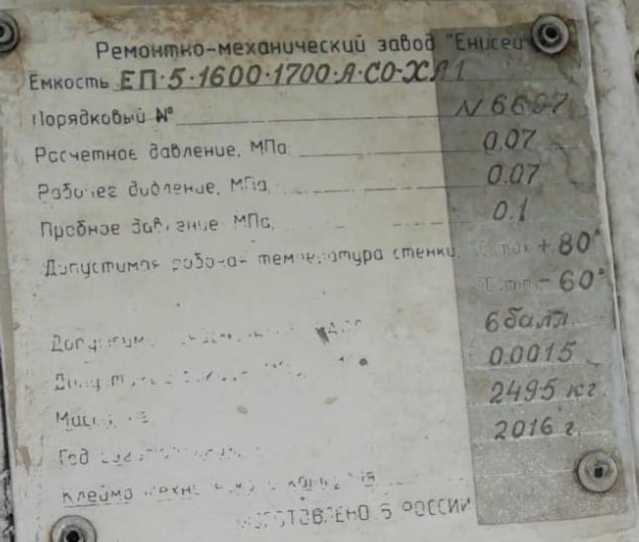 Ремонтно-механический завод "Енисей"
Емкость ЕП-5-1600-1700-А-СО-ХЛ1
Порядковый № N 6697
Рассчетное давление, МПа 0.07
Рабочее давление, МПа 0.07
Пробное давление МПа, 0.1
Допустимая рабочая температура стенки, °C max + 80°
°C min - 60°
6 балл
0.0015
Масса 2495 кг
Год 2016 г.
Клеймо
ИЗГОТОВЛЕНО В РОССИИ